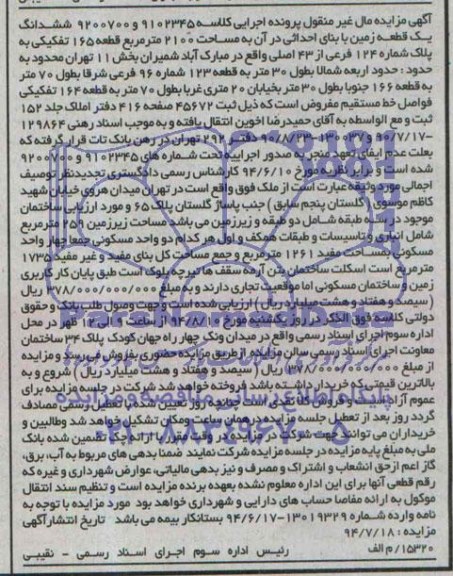 آگهی مزایده مال غیر منقول پرونده اجرایی کلاسه ۹۱۰۲۳۴۵ و ۹۲۰۰۷۰۰ ششدانگ
یک قطعه زمین با بنای احداثی در آن به مساحت ۲۱۰۰ مترمربع قطعه ۱۶۵ تفکیکی به
پلاک شماره ۱۲۴ فرعی از ۴۳ اصلی واقع در مبارک آباد شمیران بخش ۱۱ تهران محدود به
حدود : حدود اربعه شمالا بطول ۳۰ متر به قطعه ۱۲۳ شماره ۹۶ فرعی شرقا بطول ۷۰ متر
به قطعه ۱۶۶ جنوبا بطول ۳۰ متر بخیابان ۲۰ متری غربا بطول ۷۰ متر به قطعه ۱۶۴ تفکیکی
فواصل خط مستقیم مفروض است که ذیل ثبت ۴۵۶۷۲ صفحه ۴۱۶ دفتر املاک جلد ۱۵۲
ثبت و مع الواسطه به آقای حمیدرضا اخوین انتقال یافته و به موجب اسناد رهنی ۱۲۹۸۶۴
-۹۰/۷/۱۷ و ۱۳۰۰۳۷-۹۰/۸/۲۳ دفتر ۲۹۲ تهران در رهن بانک تات قرار گرفته که
بعلت عدم ایفای تعهد منجر به صدور اجرائیه تحت شماره های ۹۱۰۲۳۴۵ و ۹۲۰۰۷۰۰
شده است و برابر نظریه مورخ ۹۴/۶/۱۰ کارشناس رسمی دادگستری تجدیدنظر توصیف
اجمالی مورد وثیقه عبارت است از ملک فوق واقع است در تهران میدان هروی خیابان شهید
کاظم موسوی ( گلستان پنجم سابق ) جنب پاساژ گلستان پلاک ۶۵ و مورد ارزیابی ساختمان
موجود در سه طبقه شامل دو طبقه و زیرزمین می باشد مساحت زیرزمین ۲۵۰ مترمربع
شامل انباری و تاسیسات و طبقات همکف و اول هر کدام دو واحد مسکونی جمعا چهار واحد
مسکونی بمساحت مفید ۱۲۶۱ مترمربع و جمع مساحت کل بنای مفید و غیر مفید ۱۷۳۵
مترمربع است اسکلت ساختمان بتن آرمه سقف ها تیرچه بلوک است طبق پایان کار کاربری
زمین و ساختمان مسکونی اما موقعیت تجاری دارند و به مبلغ ۳۷۸/۰۰۰/۰۰۰/۰۰۰ ریال
( سیصد و هفتاد و هشت میلیارد ریال ) ارزیابی شده است و جهت وصول طلب بانک و حقوق
دولتی کلاسه فوق الذکر در روز یکشنبه مورخ ۹۴/۸/۱۰ از ساعت ۹ الی ۱۲ ظهر در محل
اداره سوم اجرای اسناد رسمی واقع در میدان ونک چهار راه جهان کودک پلاک ۳۴ ساختمان
معاونت اجرای اسناد رسمی سالن مزایده از طریق مزایده حضوری بفروش می رسد و مزایده
از مبلغ ۳۷۸/۰۰۰/۰۰۰/۰۰۰ ریال ( سیصد و هفتاد و هشت میلیارد ریال ) شروع و به
بالاترین قیمتی که خریدار داشته باشد فروخته خواهد شد شرکت در جلسه مزایده برای
عموم آزاد است و فروش کلا نقدی است چنانچه روز تعیین شده با تعطیل رسمی مصادف
گردد روز بعد از تعطیل جلسه مزایده در همان ساعت و مکان تشکیل خواهد شد وطالبین و
خریداران می توانند جهت شرکت در مزایده در وقت مقرر با ارائه چک تضمین شده بانک
ملی به مبلغ پایه مزایده در جلسه مزایده شرکت نمایند ضمنا بدهی های مربوط به آب، برق،
گاز اعم ازحق انشعاب و اشتراک و مصرف و نیز بدهی مالیاتی، عوارض شهرداری و غیره که
رقم قطعی آنها برای این اداره معلوم نشده بعهده برنده مزایده است و تنظیم سند انتقال
موکول به ارائه مفاصا حساب های دارایی و شهرداری خواهد بود مورد مزایده با توجه به
نامه وارده شماره ۱۳۰۱۹۳۲۹-۹۴/۶/۱۷ بستانکار بیمه می باشد تاریخ انتشارآگهی
مزایده : ۹۴/۷/۱۸
۱۵۳۲۰/م الف رئیس اداره سوم اجرای اسناد رسمی - نقیبی
ParsNamadData
پایگاه اطلاع رسانی مناقصه و مزایده
۰۲۱-۸۸۳۴۹۶۷۰-۵